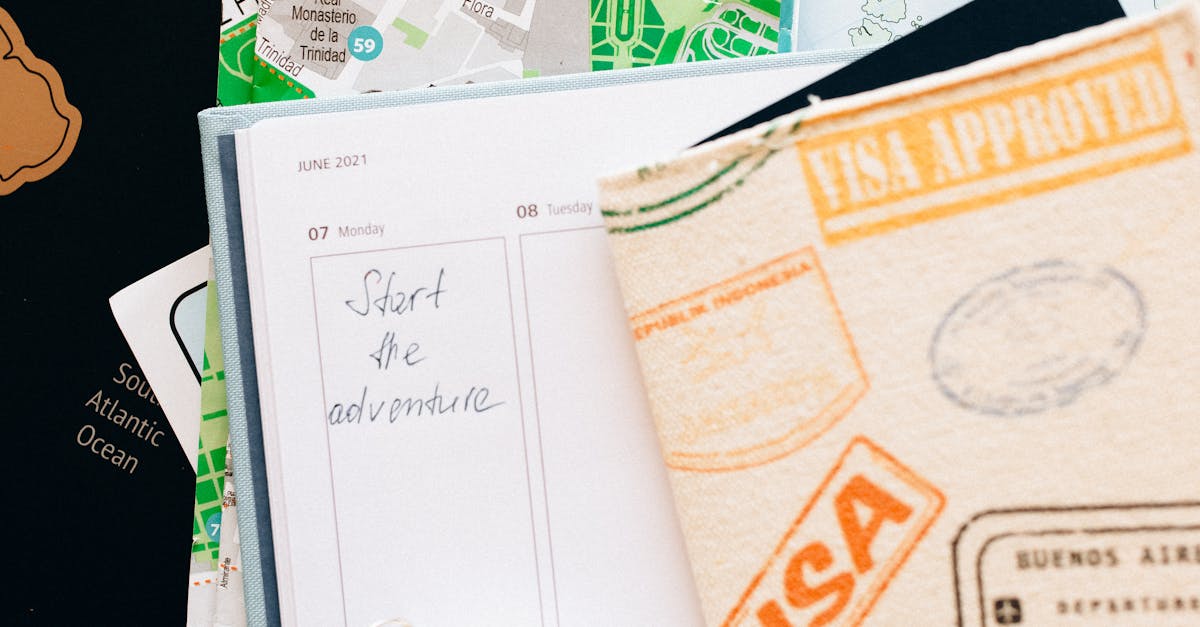 Real
Monasterio
de la
Trinidad
59
Trinidad
Flora
JUNE 2021
07 Monday
08 Tuesday
Start
the
adventure
VISA APPROVED
REPUBLIK INDONESIA
VISA
BUENOS AIR
DEPARTUR
South
Atlantic
Ocean
7
Almirante